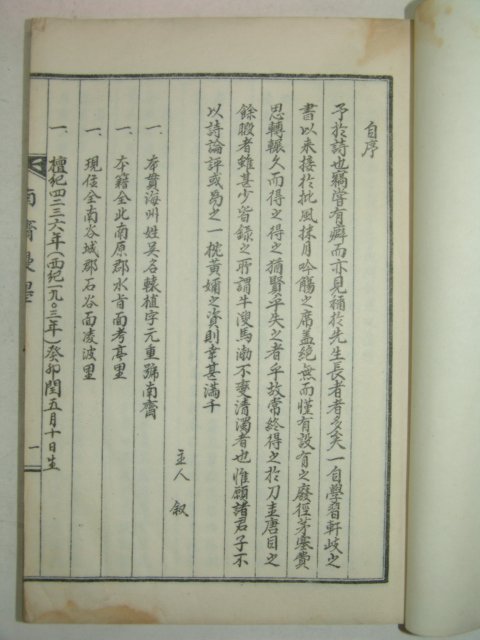 自序
予於詩也竊嘗有癖而亦見稱於先生長者者多矣一自學習軒岐之
書以來接於批風抹月吟觴之席盖絶無而僅有設有之廢徑茅塞費
思轉輾久而得之得之猶賢乎失之者乎故常終得之於刀圭唐目之
餘暇者雖甚少皆録之所謂牛溲馬渤不变清濁者也惟願諸君子不
以詩論評或爲之一梡黄嬭之資則幸甚滿千
主人 叙
一、本貫海州姓吳名轅植字元重號南齋
一、本籍全北南原郡水旨面考亭里
一、現住全南谷城郡石谷面凌波里
一、檀紀四二三六年(西紀一九〇三年)癸卯閏五月十日生
南齋漫墨
一